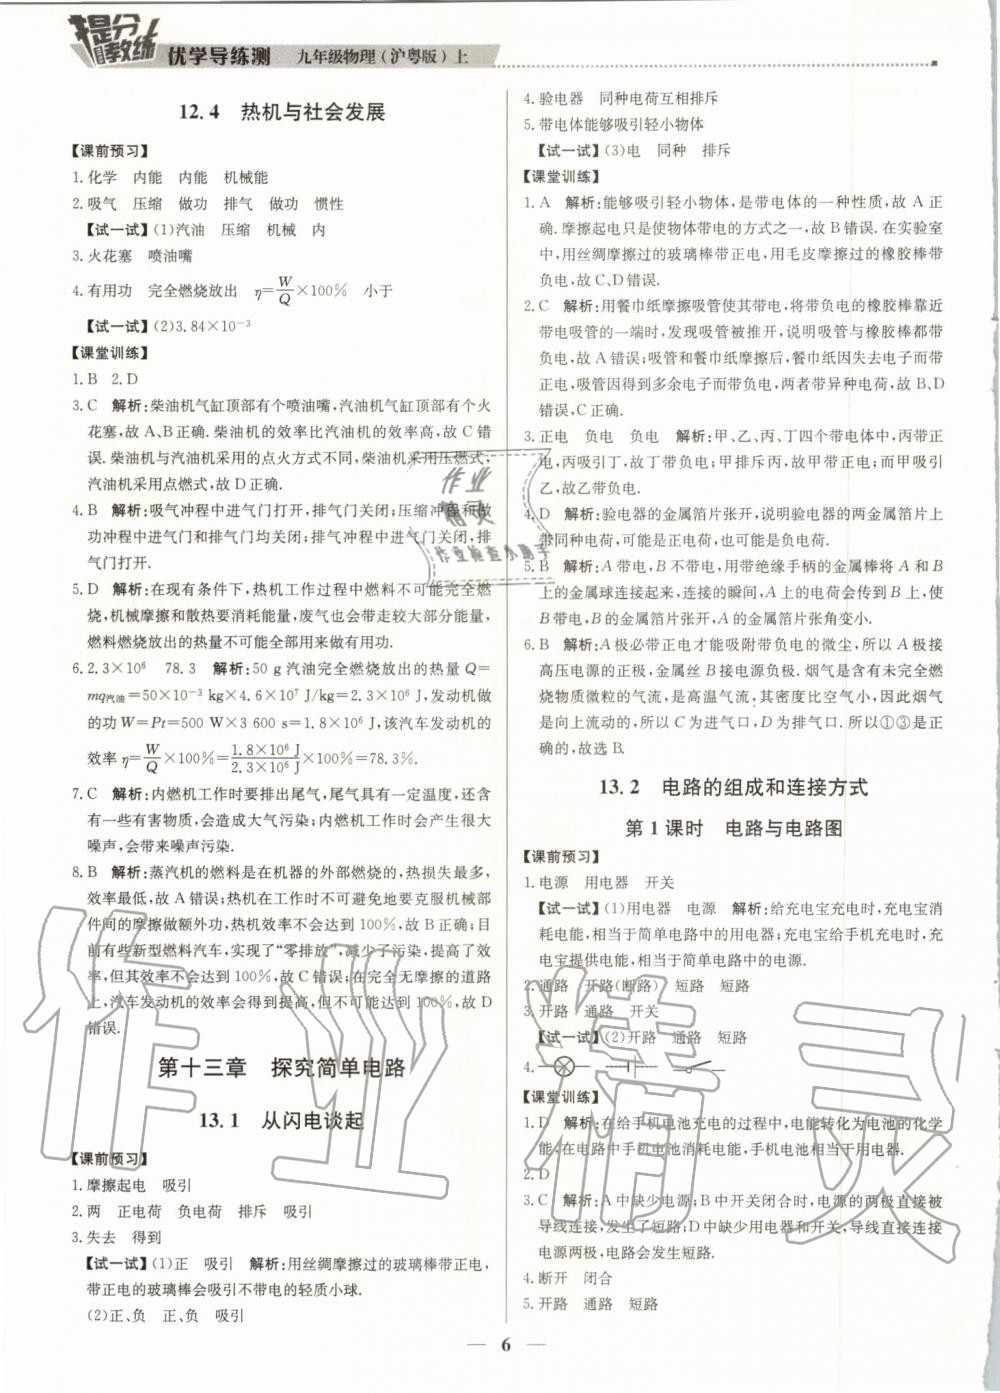 提分教练 优学导练测 九年级物理(沪粤版)上
12.4 热机与社会发展
【课前预习】
1.化学 内能 内能 机械能
2.吸气 压缩 做功 排气 做功 惯性
【试一试】(1)汽油 压缩 机械 内
3.火花塞 喷油嘴
4.有用功 完全燃烧放出 η=W/Q×100% 小于
【试一试】(2)3.84×10⁻³
【课堂训练】
1.B 2.D
3.C 解析:柴油机气缸顶部有个喷油嘴,汽油机气缸顶部有个火
花塞,故A、B正确.柴油机的效率比汽油机的效率高,故C错
误.柴油机与汽油机采用的点火方式不同,柴油机采用压燃式,
汽油机采用点燃式,故D正确.
4.B 解析:吸气冲程中进气门打开,排气门关闭;压缩冲程和做
功冲程中进气门和排气门均关闭;排气冲程中进气门关闭,排
气门打开.
5.D 解析:在现有条件下,热机工作过程中燃料不可能完全燃
烧,机械摩擦和散热要消耗能量,废气也会带走较大部分能量,
燃料燃烧放出的热量不可能全部用来做有用功.
6.2.3×10⁶ 78.3 解析:50 g汽油完全燃烧放出的热量Q=
mq汽油=50×10⁻³ kg×4.6×10⁷ J/kg=2.3×10⁶ J,发动机做
的功W=Pt=500 W×3 600 s=1.8×10⁶ J,该汽车发动机的
效率η=W/Q×100%=1.8×10⁶ J/2.3×10⁶ J×100%=78.3%.
7.C 解析:内燃机工作时要排出尾气,尾气具有一定温度,还含
有一些有害物质,会造成大气污染;内燃机工作时会产生很大
噪声,会带来噪声污染.
8.B 解析:蒸汽机的燃料是在机器的外部燃烧的,热损失最多,
效率最低,故A错误;热机在工作时不可避免地要克服机械部
件间的摩擦做额外功,热机效率不会达到100%,故B正确;目
前有些新型燃料汽车,实现了“零排放”,减少了污染,提高了效
率,但其效率不会达到100%,故C错误;在完全无摩擦的道路
上,汽车发动机的效率会得到提高,但不可能达到100%,故D
错误.
第十三章 探究简单电路
13.1 从闪电谈起
【课前预习】
1.摩擦起电 吸引
2.两 正电荷 负电荷 排斥 吸引
3.失去 得到
【试一试】(1)正 吸引 解析:用丝绸摩擦过的玻璃棒带正电,
带正电的玻璃棒会吸引不带电的轻质小球.
(2)正、负 正、负 吸引
4.验电器 同种电荷互相排斥
5.带电体能够吸引轻小物体
【试一试】(3)电 同种 排斥
【课堂训练】
1.A 解析:能够吸引轻小物体,是带电体的一种性质,故A正
确.摩擦起电只是使物体带电的方式之一,故B错误.在实验室
中,用丝绸摩擦过的玻璃棒带正电,用毛皮摩擦过的橡胶棒带
负电,故C、D错误.
2.C 解析:用餐巾纸摩擦吸管使其带电,将带负电的橡胶棒靠近
带电吸管的一端时,发现吸管被推开,说明吸管与橡胶棒都带
负电,故A错误;吸管和餐巾纸摩擦后,餐巾纸因失去电子而带
正电,吸管因得到多余电子而带负电,两者带异种电荷,故B、D
错误,C正确.
3.正电 负电 负电 解析:甲、乙、丙、丁四个带电体中,丙带正
电,丙吸引丁,故丁带负电;甲排斥丙,故甲带正电;而甲吸引
乙,故乙带负电.
4.D 解析:验电器的金属箔片张开,说明验电器的两金属箔片上
带同种电荷,可能是正电荷,也可能是负电荷.
5.B 解析:A带电,B不带电,用带绝缘手柄的金属棒将A和B
上的金属球连接起来,连接的瞬间,A上的电荷会传到B上,使
B带电,B的金属箔片张开,A的金属箔片张角变小.
6.B 解析:A极必带正电才能吸附带负电的微尘,所以A极接
高压电源的正极,金属丝B接电源负极.烟气是含有未完全燃
烧物质微粒的气流,是高温气流,其密度比空气小,因此烟气
是向上流动的,所以C为进气口,D为排气口.所以①③是正
确的,故选B.
13.2 电路的组成和连接方式
第1课时 电路与电路图
【课前预习】
1.电源 用电器 开关
【试一试】(1)用电器 电源 解析:给充电宝充电时,充电宝消
耗电能,相当于简单电路中的用电器;充电宝给手机充电时,充
电宝提供电能,相当于简单电路中的电源.
2.通路 开路(断路) 短路 短路
3.开路 通路 开关
【试一试】(2)开路 通路 短路
4.
【课堂训练】
1.D 解析:在给手机电池充电的过程中,电能转化为电池的化学
能,在电路中手机电池消耗电能,手机电池相当于用电器.
2.D
3.C 解析:A中缺少电源;B中开关闭合时,电源的两极直接被
导线连接,发生了短路;D中缺少用电器和开关,导线直接连接
电源两极,电路会发生短路.
4.断开 闭合
5.开路 通路 短路
6
作业精灵
作业检查小助手
作业精灵